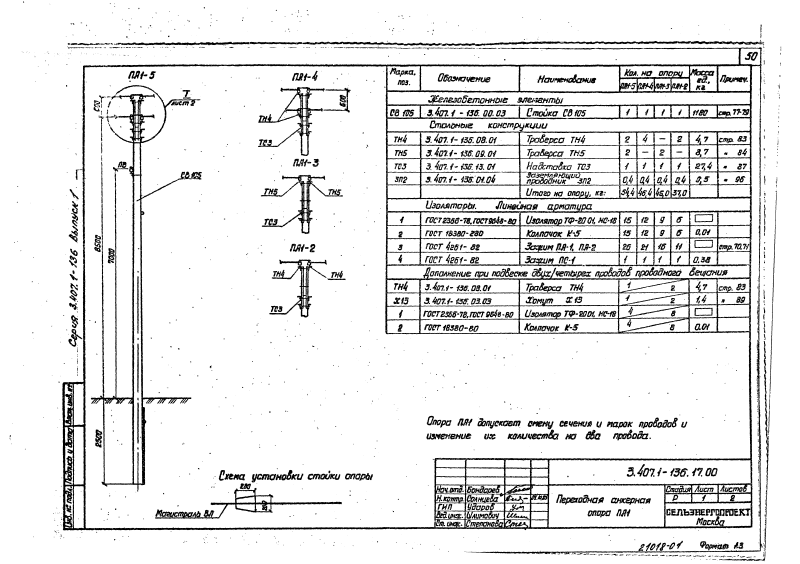 50
ПА1-5
I
лист 2
600
ПВ
СВ 105
8500
7000
2500
ПА1-4
ТН4
ТС3
600
ПА1-3
ТН5 ТН5
ТС3
ПА1-2
ТН4 ТН4
ТС3
Серия 3.407.1-136 Выпуск 1
Марка, поз. Обозначение Наименование Кол. на опору Масса ед., кг Примеч.
ПА1-5 ПА1-4 ПА1-3 ПА1-2
Железобетонные элементы
СВ 105 3.407.1-136.00.03 Стойка СВ 105 1 1 1 1 1180 стр. 77-79
Стальные конструкции
ТН4 3.407.1-136.08.01 Траверса ТН4 2 4 — 2 4,7 стр. 83
ТН5 3.407.1-136.09.01 Траверса ТН5 2 — 2 — 8,7 " 84
ТС3 3.407.1-136.13.01 Надставка ТС3 1 1 1 1 27,4 " 87
ЗП2 3.407.1-136.01.04 Заземляющий проводник ЗП2 0,4 0,4 0,4 0,4 0,5 " 96
Итого на опору, кг: 54,4 46,4 45,0 37,0
Изоляторы. Линейная арматура
1 ГОСТ 2366-78, ГОСТ 9648-80 Изолятор ТФ-20 01, НС-18 15 12 9 6
2 ГОСТ 18380-80 Колпачок К-5 15 12 9 6 0,01
3 ГОСТ 4261-82 Зажим ПА-1, ПА-2 26 21 16 11 стр. 70,71
4 ГОСТ 4261-82 Зажим ПС-1 1 1 1 1 0,38
Дополнение при подвеске двух/четырех проводов проводного вещания
ТН4 3.407.1-136.08.01 Траверса ТН4 1 2 4,7 стр. 83
Х15 3.407.1-136.03.03 Хомут Х15 1 2 1,4 " 89
1 ГОСТ 2366-78, ГОСТ 9648-80 Изолятор ТФ-20 01, НС-18 4 8
2 ГОСТ 18380-80 Колпачок К-5 4 8 0,01
Опора ПА1 допускает смену сечения и марок проводов и
изменение их количества на два провода.
Схема установки стойки опоры
280
Магистраль ВЛ
3.407.1-136.17.00
Нач. отд. Бондарев
Н. контр. Солнцева
ГИП Ударов
Вед. инж. Улимович
Ст. инж. Степанова
Переходная анкерная
опора ПА1
Стадия Лист Листов
Р 1 2
СЕЛЬЭНЕРГОПРОЕКТ
Москва
Инв. № подл. Подпись и дата Взам. инв. №
21018-01 Формат А3